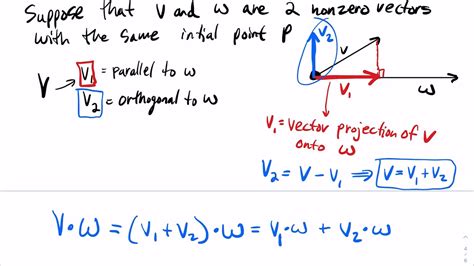 Suppose that V and w are 2 nonzero vectors
with the same intial point P
V → V₁ = parallel to w
V₂ = orthogonal to w
V₂ V
V₁ w
V₁ = vector projection of V
onto w
V₂ = V − V₁ ⟹ V = V₁ + V₂
V·w = (V₁ + V₂)·w = V₁·w + V₂·w